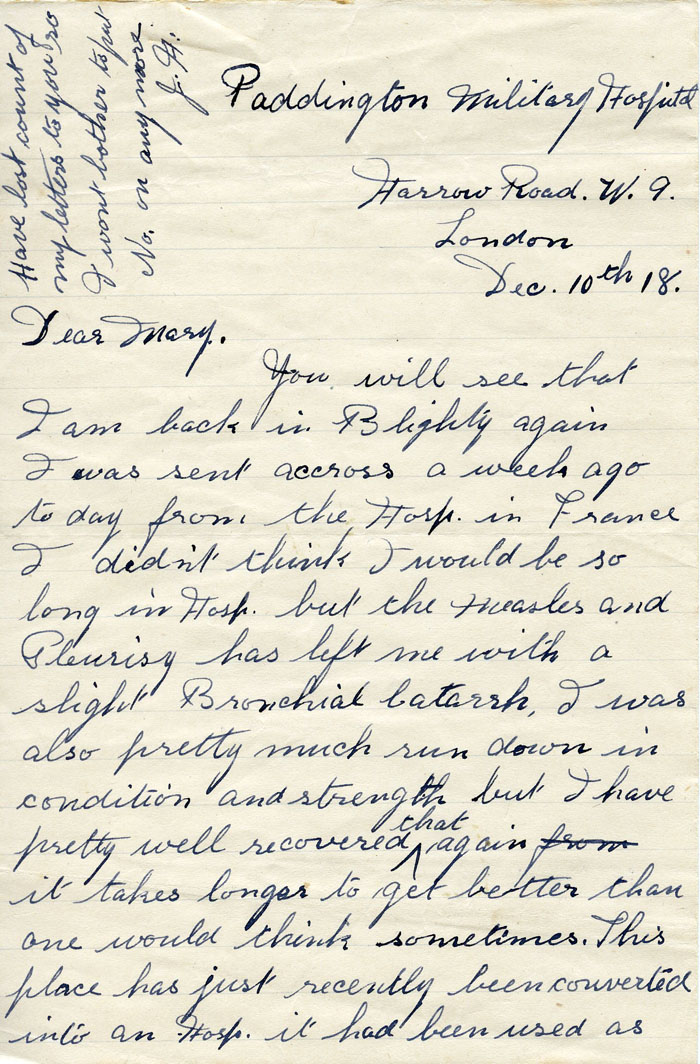 Have lost count of
my letters to you so
I wont bother to put
No. on any more
J. H.
Paddington Military Hospital
Harrow Road. W. 9.
London
Dec. 10th 18.
Dear Mary.
You will see that
I am back in Blighty again
I was sent accross a week ago
to day from the Hosp. in France
I didn't think I would be so
long in Hosp. but the Measles and
Pleurisy has left me with a
slight Bronchial Catarrh, I was
also pretty much run down in
condition and strength but I have
pretty well recovered that again from
it takes longer to get better than
one would think sometimes. This
place has just recently been converted
into an Hosp. it had been used as